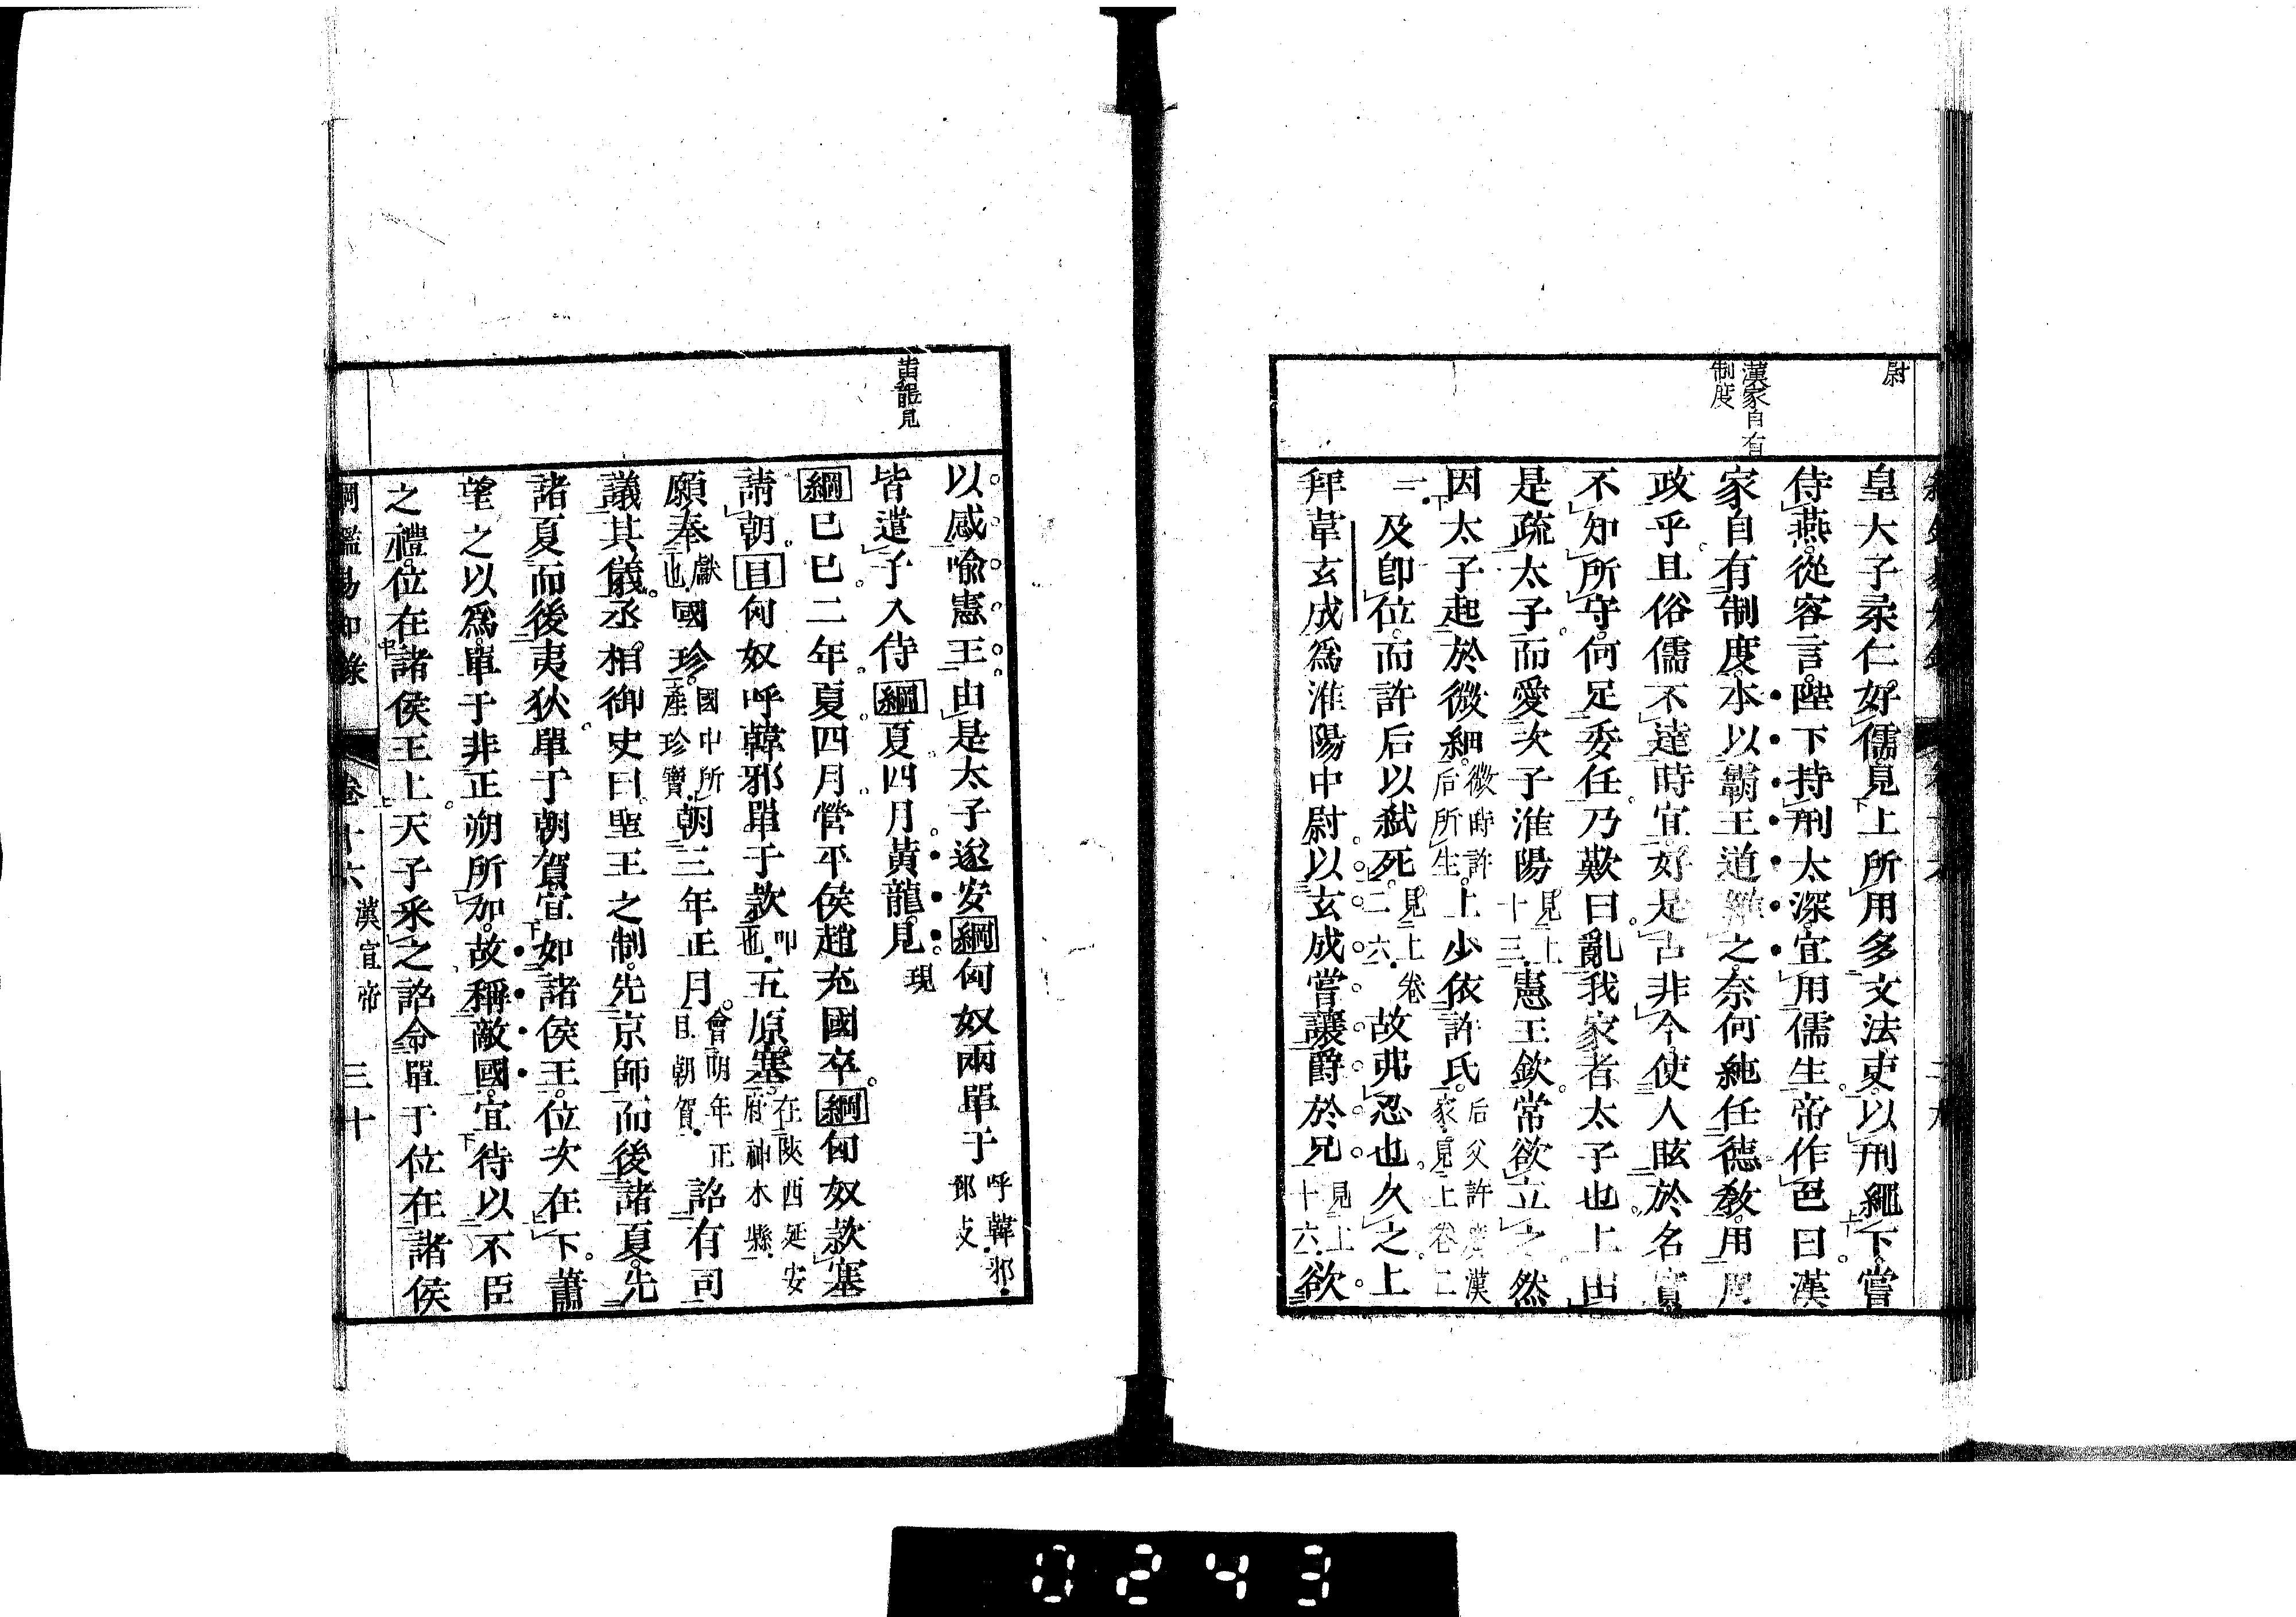 尉
漢家自有
制度
皇大子柔仁好儒見上所用多文法吏以刑繩下嘗
侍燕從容言陛下持刑太深宜用儒生帝作色曰漢
家自有制度本以霸王道雜之奈何純任德教用周
政乎且俗儒不達時宜好是古非今使人眩於名實
不知所守何足委任乃歎曰亂我家者太子也上由
是疏太子而愛次子淮陽見上十三憲王欽常欲立之然
因太子起於微細微時許后所生上少依許氏后父許廣漢家見上卷二
一及卽位而許后以弑死見上卷二六故弗忍也久之上
拜韋玄成爲淮陽中尉以玄成嘗讓爵於兄見上十六欲
黃龍見
以感喻憲王由是太子遂安綱匈奴兩單于呼韓邪郅支
皆遣子入侍綱夏四月黃龍見現
綱己巳二年夏四月營平侯趙充國卒綱匈奴款塞
請朝目匈奴呼韓邪單于款叩也五原塞在陝西延安府神木縣
願奉獻也國珍國中所產珍寶朝三年正月會明年正月朝賀詔有司
議其儀丞相御史曰聖王之制先京師而後諸夏先
諸夏而後夷狄單于朝賀宜如諸侯王位次在下蕭
望之以爲單于非正朔所加故稱敵國宜待以不臣
之禮位在諸侯王上天子采之詔令單于位在諸侯
綱鑑易知錄 卷十六 漢宣帝 三十
0243